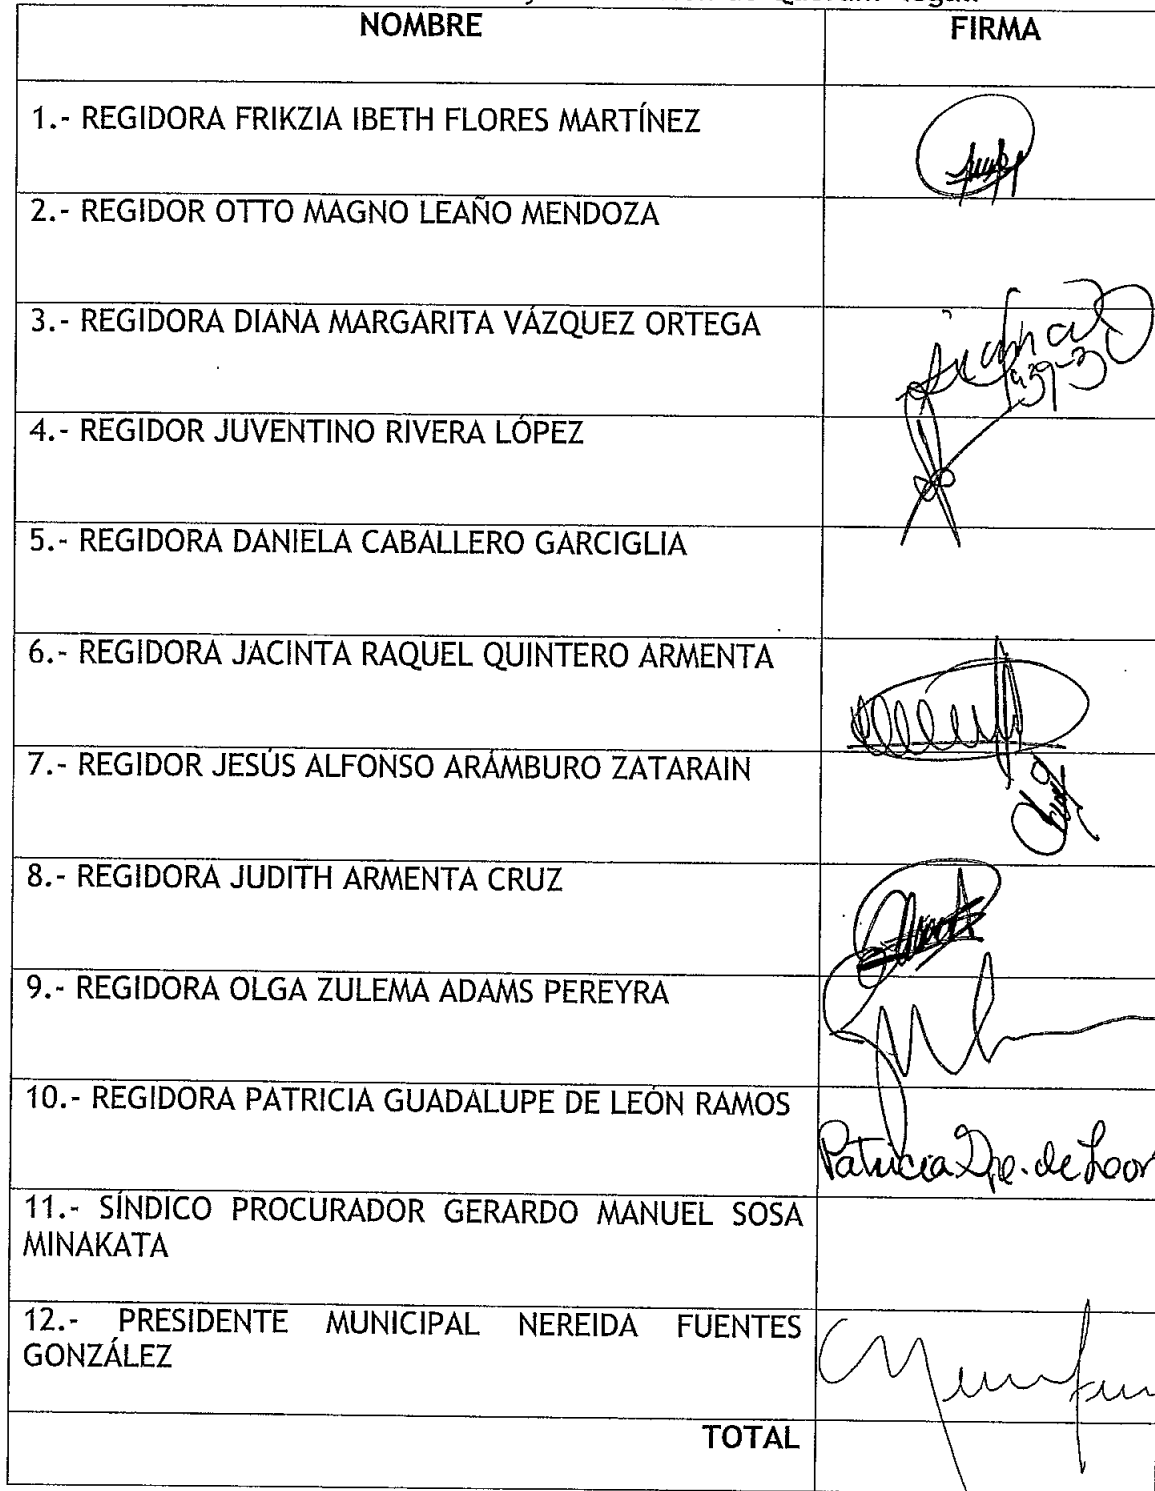 NOMBRE FIRMA
1.- REGIDORA FRIKZIA IBETH FLORES MARTÍNEZ
2.- REGIDOR OTTO MAGNO LEAÑO MENDOZA
3.- REGIDORA DIANA MARGARITA VÁZQUEZ ORTEGA
4.- REGIDOR JUVENTINO RIVERA LÓPEZ
5.- REGIDORA DANIELA CABALLERO GARCIGLIA
6.- REGIDORA JACINTA RAQUEL QUINTERO ARMENTA
7.- REGIDOR JESÚS ALFONSO ARÁMBURO ZATARAIN
8.- REGIDORA JUDITH ARMENTA CRUZ
9.- REGIDORA OLGA ZULEMA ADAMS PEREYRA
10.- REGIDORA PATRICIA GUADALUPE DE LEÓN RAMOS
Patricia Gpe. de Leon
11.- SÍNDICO PROCURADOR GERARDO MANUEL SOSA
MINAKATA
12.- PRESIDENTE MUNICIPAL NEREIDA FUENTES
GONZÁLEZ
TOTAL